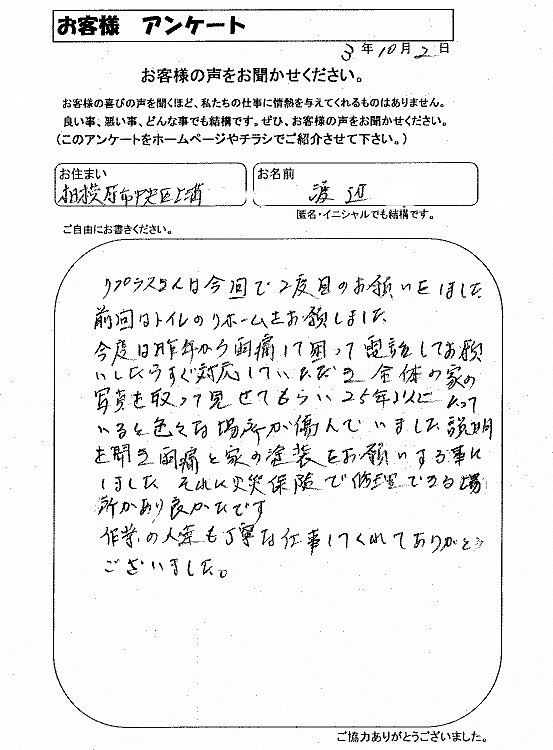 お客様 アンケート
3年10月2日
お客様の声をお聞かせください。
お客様の喜びの声を聞くほど、私たちの仕事に情熱を与えてくれるものはありません。
良い事、悪い事、どんな事でも結構です。ぜひ、お客様の声をお聞かせください。
(このアンケートをホームページやチラシでご紹介させて下さい。)
お住まい
相模原市中央区上溝
お名前
渡辺
匿名・イニシャルでも結構です。
ご自由にお書きください。
リプラスさんは今回で2度目のお願いをしました
前回はトイレのリホームをお願しました
今度は昨年から雨痛して困って電話してお願
いしたらすぐ対応していただき全体の家の
写真を取って見せてもらい25年以上たって
いると色々な場所が傷んでいました説明
を聞き雨痛と家の塗装をお願いする事に
しました それに火災保険で修理できる場
所があり良かたです
作業の人達も丁寧な仕事してくれてありがとう
ございました。
ご協力ありがとうございました。